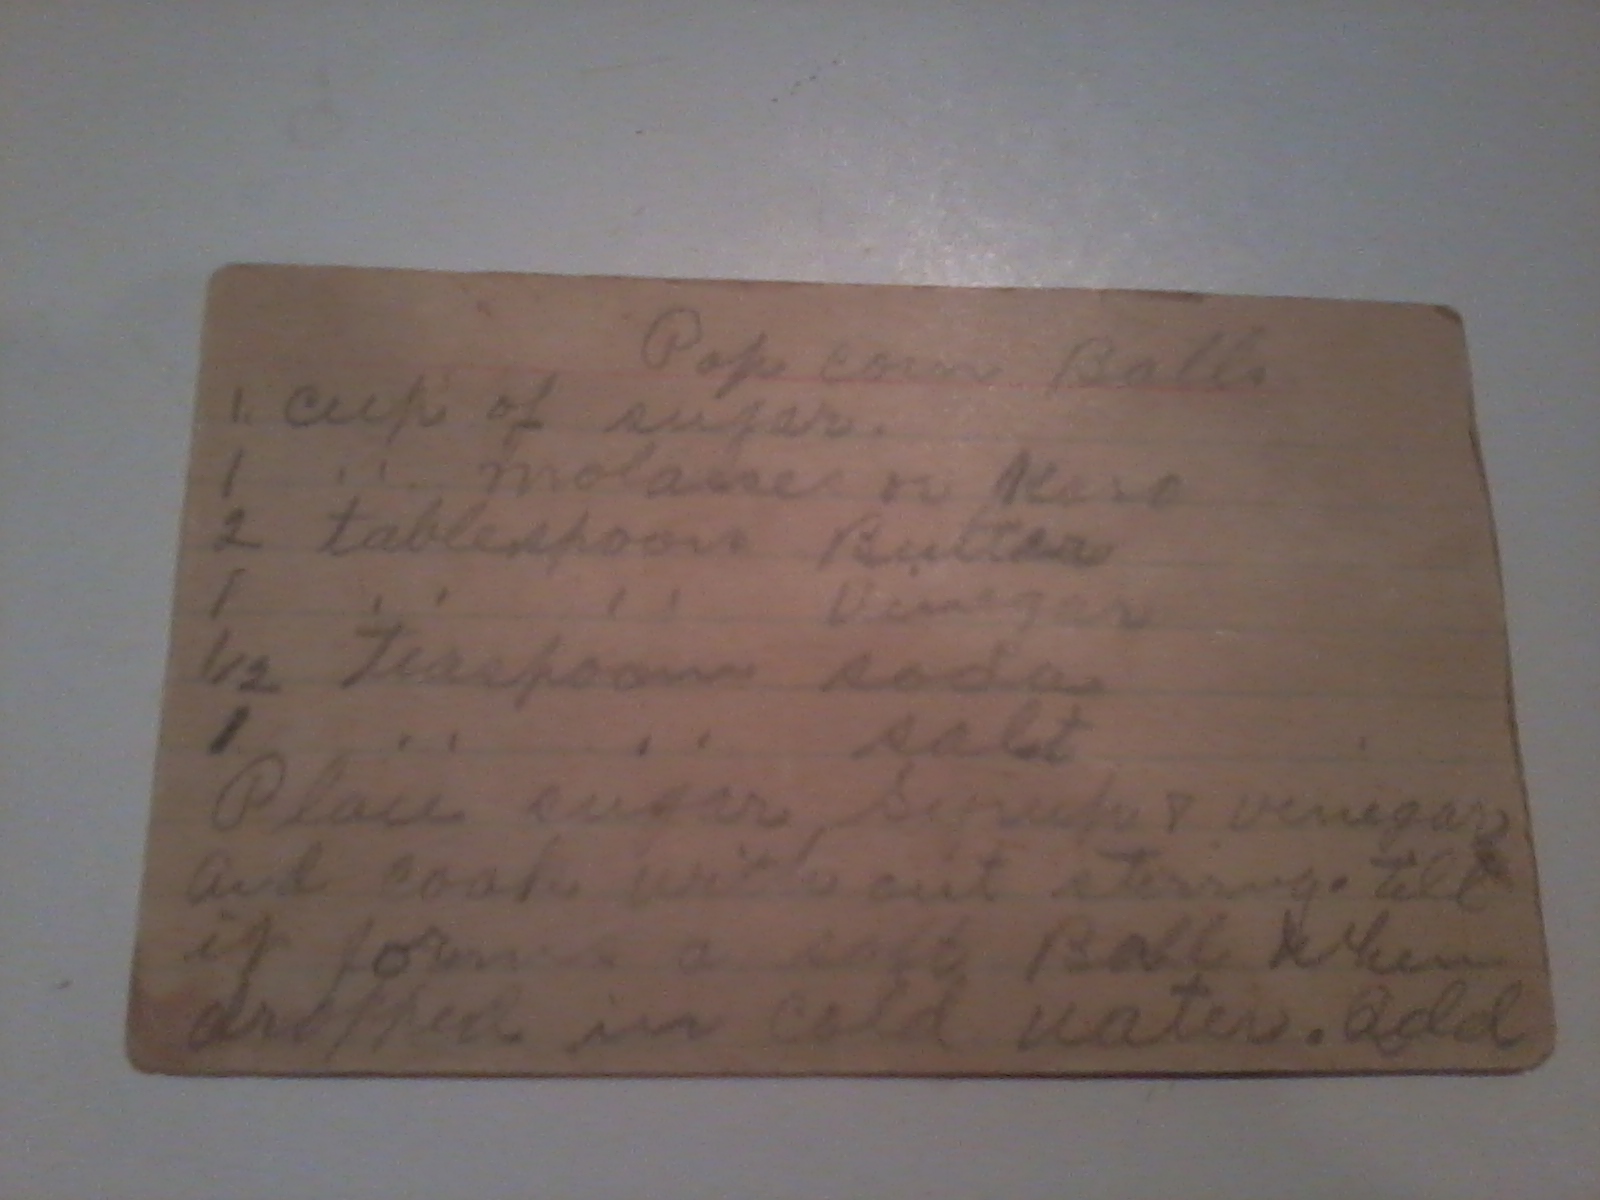 Pop corn Balls
1 cup of sugar.
1 " molasses or Karo
2 tablespoons Butter
1 " " Vinegar
1/2 Teaspoon soda
1 " " salt
Place sugar, syrup & vinegar
and cook with out stirring. till
it forms a soft Ball when
dropped in cold water. Add